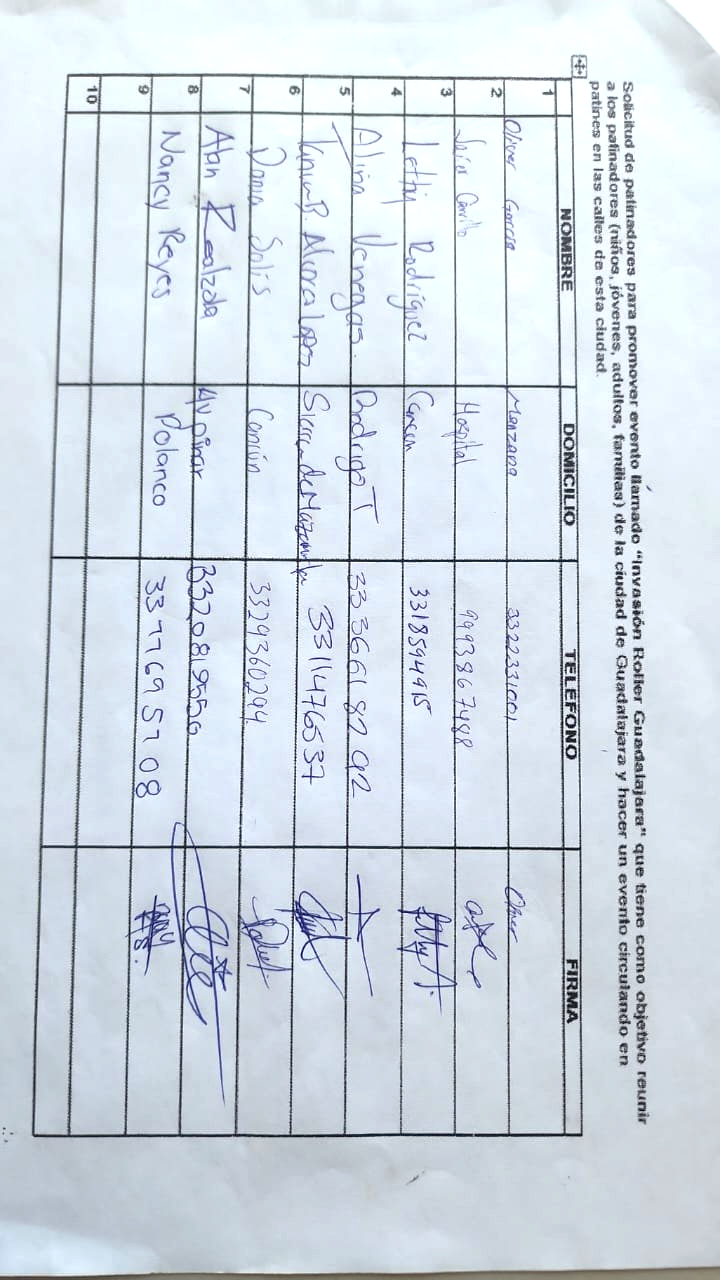 Solicitud de patinadores para promover evento llamado "Invasión Roller Guadalajara" que tiene como objetivo reunir
a los patinadores (niños, jóvenes, adultos, familias) de la ciudad de Guadalajara y hacer un evento circulando en
patines en las calles de esta ciudad.
NOMBRE DOMICILIO TELÉFONO FIRMA
1 Oliver Garcia Manzana 3322331001 Oliver
2 Carrillo Hospital 9993867488
3 Letty Rodríguez Cancun 3318594915
4 Alina Venegas. Rodrigo T 3336618792
5 Sierra de Mazamitla 3311476537
6 Dania Solis Canción 3329360294
7 Alan 3320819550
8 Nancy Reyes Polanco 3377695708
9
10